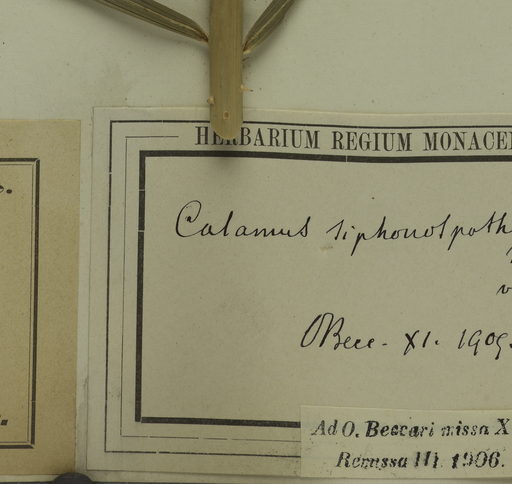 HERBARIUM REGIUM MONACE
Calamus siphonospath
v
OBecc. XI. 1909.
Ad O. Beccari missa X
Remssa III. 1906.